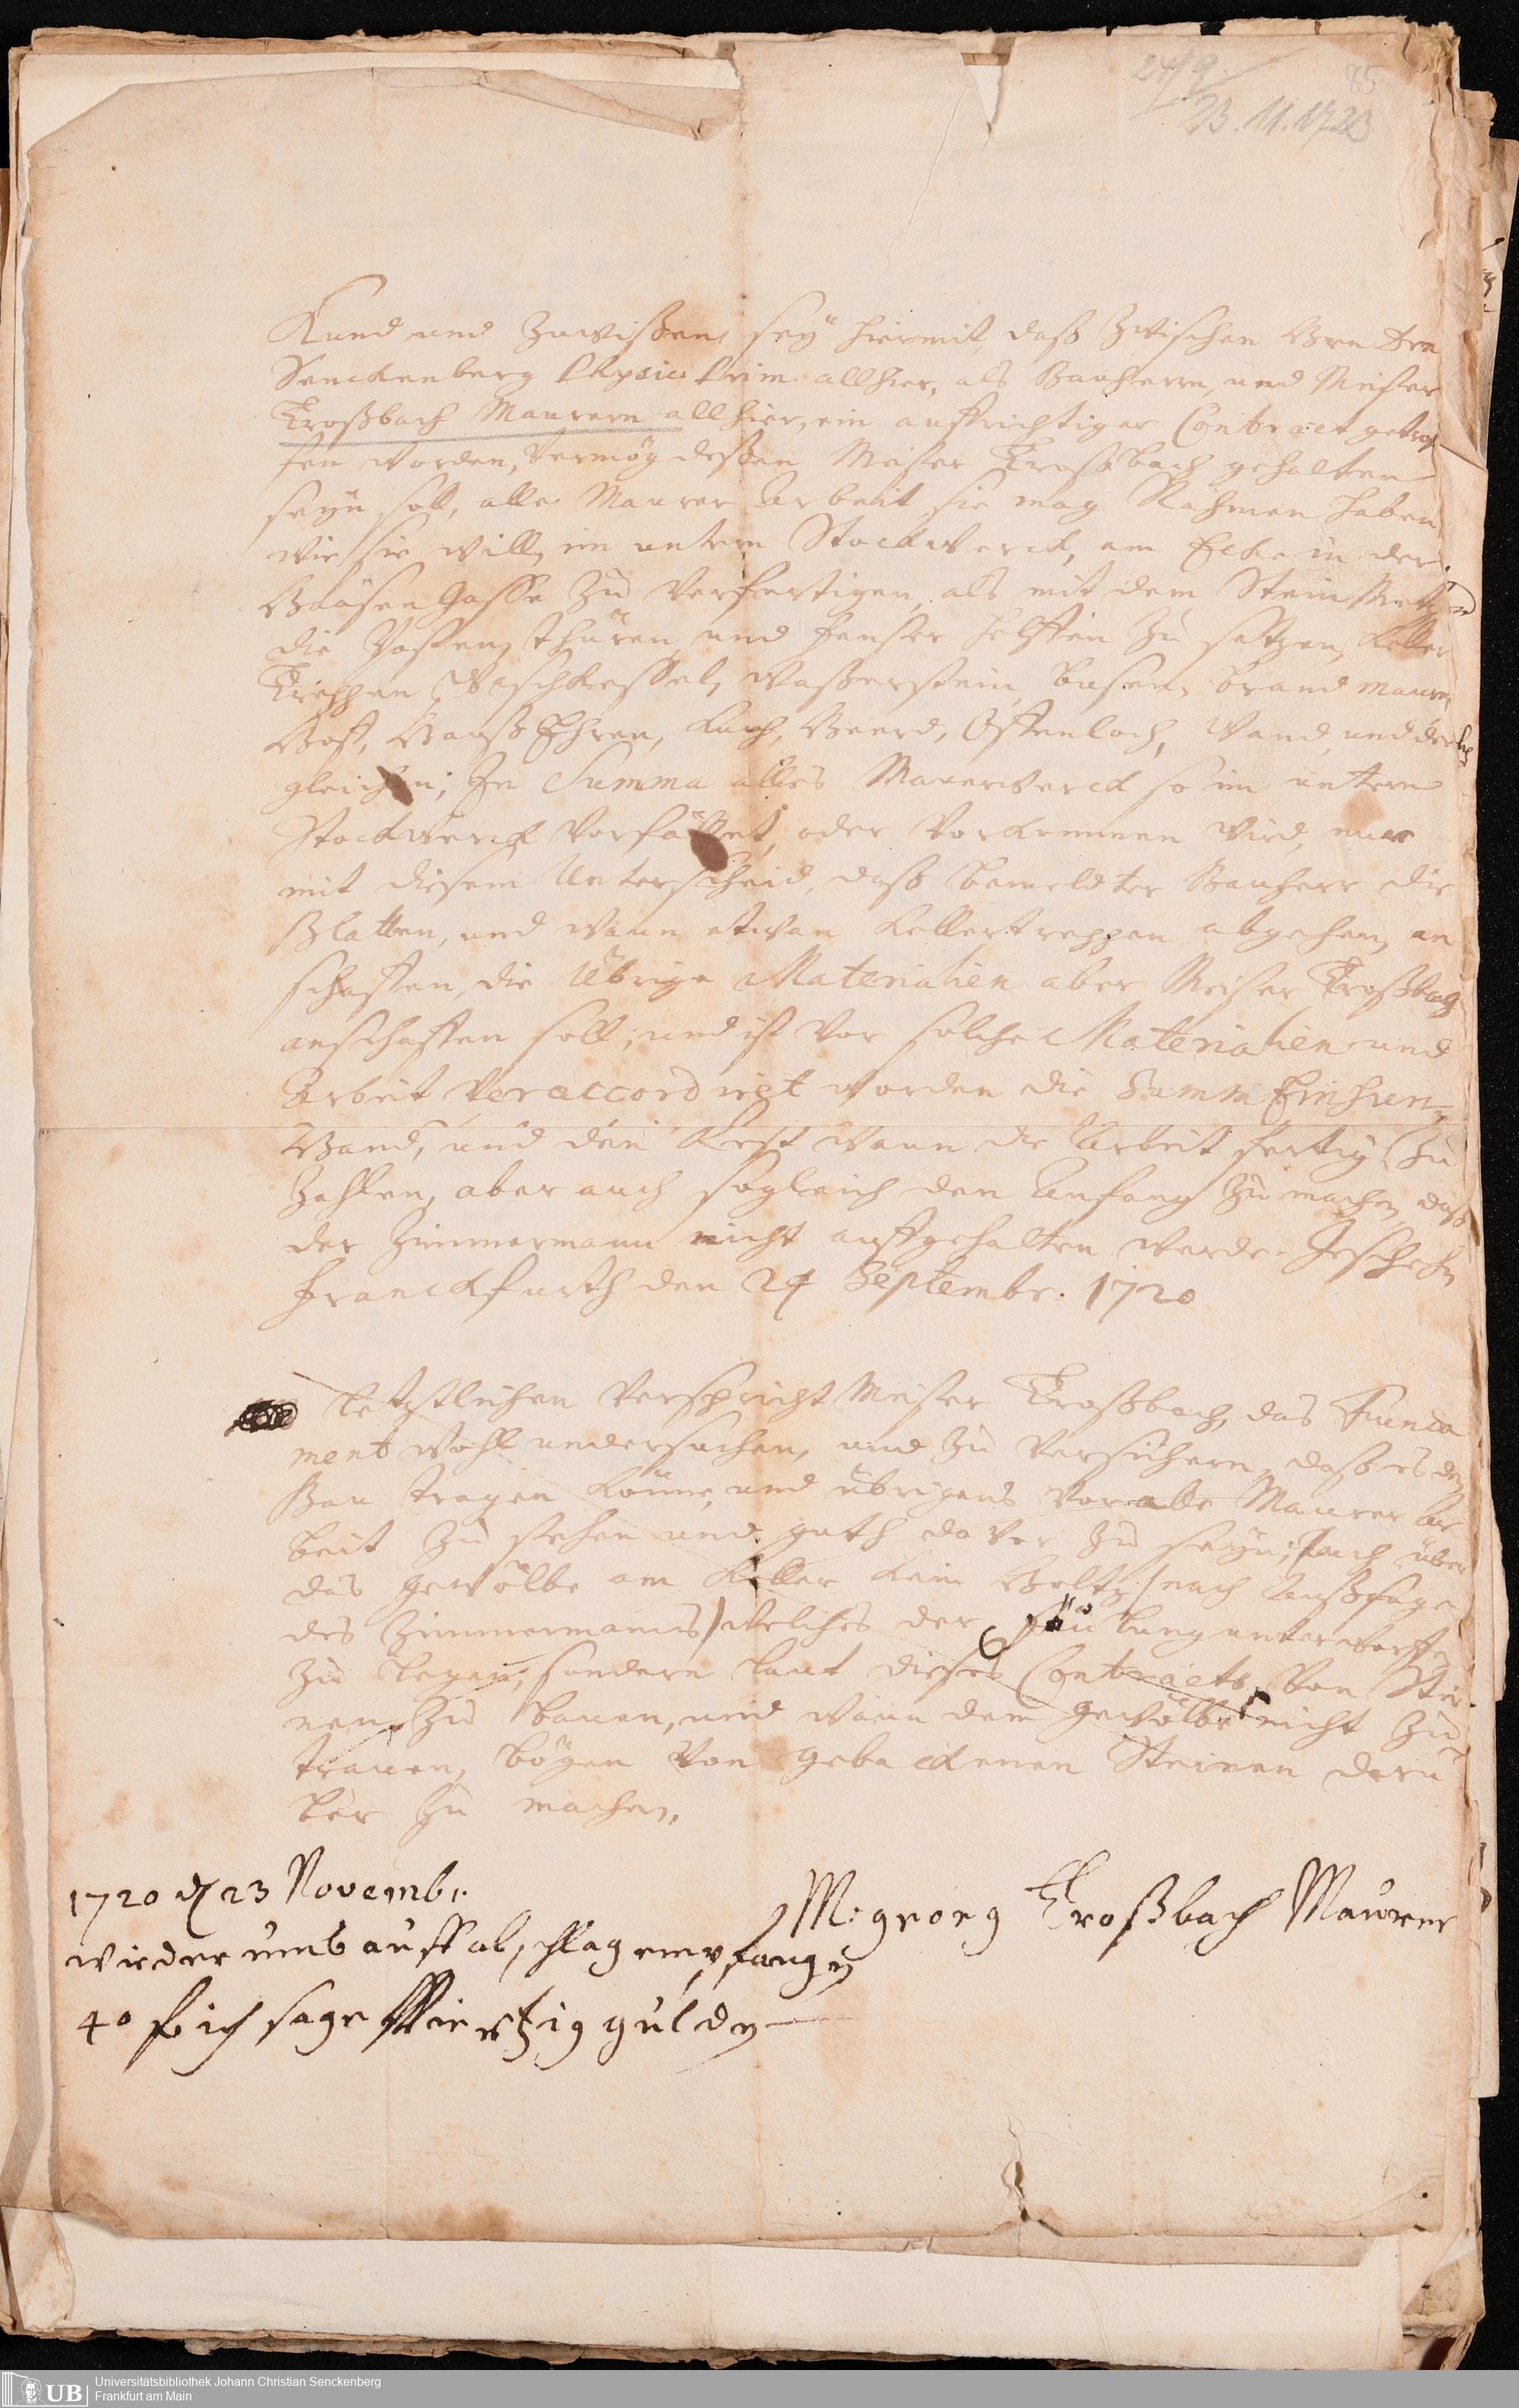 85
23.11.1720
Kund und Zuwißen seÿ hiermit, daß Zwischen Hrn Drn
Senckenberg Physic: Prim: allhier, als Bauherrn, und Meister
Troßbach Maurern allhier, ein auffrichtiger Contract getrof
fen worden, Vermög deßen Meister Troßbach gehalten
seÿn soll, alle Maurer Arbeit, sie mag Nahmen haben
wie sie will, im untern Stockwerck, am Ecke in der
Haasen Gasse zu Verfertigen, als mit dem Stein Metzen
die Posten, thüren und fenster helffen zu setzen, Keller
Treppen, Waschkessel, Waßerstein, busem, brand mauern
Hoff, Hauß Ehren, Kuch, Heerd, Offenloch, Wand, und der
gleichen; In Summa alles Mauerwerck so im untern
Stockwerck Vorfället, oder Vorkommen wird, nur
mit diesem Unterscheid, daß bemeldter Bauherr die
Blatten, und wann etwan Kellertreppen abgehen, an
schaffen, die übrige Materialien aber Meister Troßbach
anschaffen soll; und ist vor solche Materialien und
Arbeit veraccordiret worden die Summ Einhun-
Hand, und den Rest wann die Arbeit fertig zu
Zahlen, aber auch sogleich den Anfang zu machen, daß
der Zimmermann nicht auffgehalten werde. Geschehen
Franckfurth den 24 Septembr. 1720
Letztlichen Verspricht Meister Troßbach, das Funda
ment wohl undersuchen, und zu Versichern, daß es den
Bau tragen könne, und übrigens vor alle Maurer Ar
beit zu stehen und guth davor zu seÿn; Auch über
das gewölbe am Keller kein Holtz /: nach Außsage
des Zimmermanns / welches der Fäulung unterworffen
zu legen, sondern laut dieses Contracts, von Stei
nen zu bauen, und wann dem gewölbe nicht zu
trauen, bögen von gebackenen Steinen darü
ber zu machen.
1720 d 23 Novembr.
wieder umb auff abschlag empfangen
40 f ich sage Viertzig gulden
M: georg Troßbach Maurer
Universitätsbibliothek Johann Christian Senckenberg
Frankfurt am Main
UB